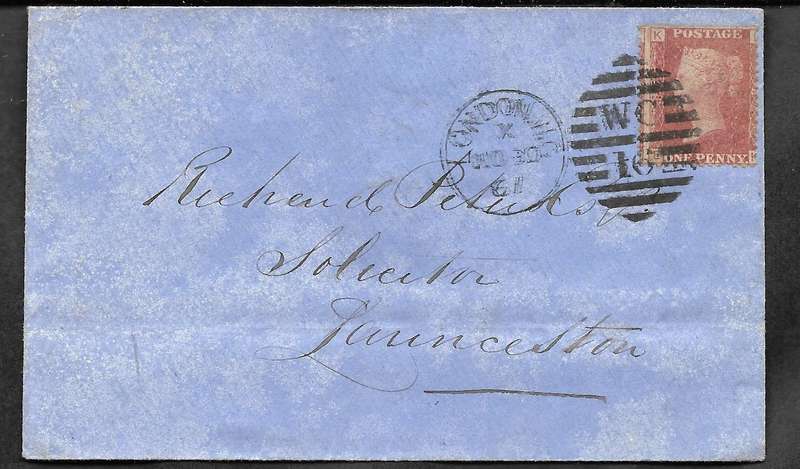 K
POSTAGE
ONE PENNY
LONDON.W.C
X
AU 30
61
WC
16
Richard
Solicitor
Launceston